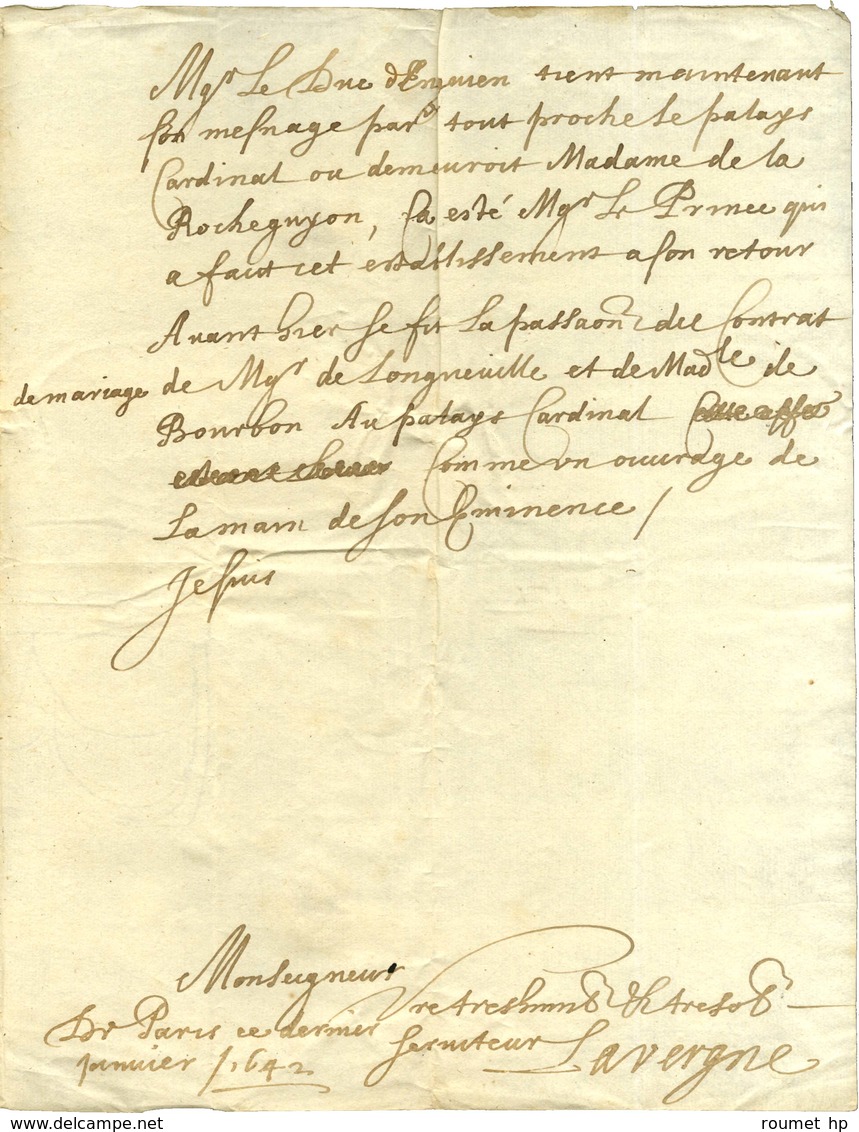 Mgr Le Duc d'Enguien tient maintenant
son mesnage par tout proche le palays
Cardinal ou demeuroit Madame de la
Rocheguyon, Ca esté Mgr Le Prince qui
a faict cet establissement a son retour
Avant hier se fit la passaon du Contrat
de mariage de Mgr de Longueville et de Madlle de
Bourbon Au palays Cardinal
Comme un ouvrage de
La main de son Eminence /
Je suis
Monseigneur
Vre treshumb & tresob
De Paris ce dernier serviteur
Janvier 1642 Lavergne
www.delcampe.net
roumet hp